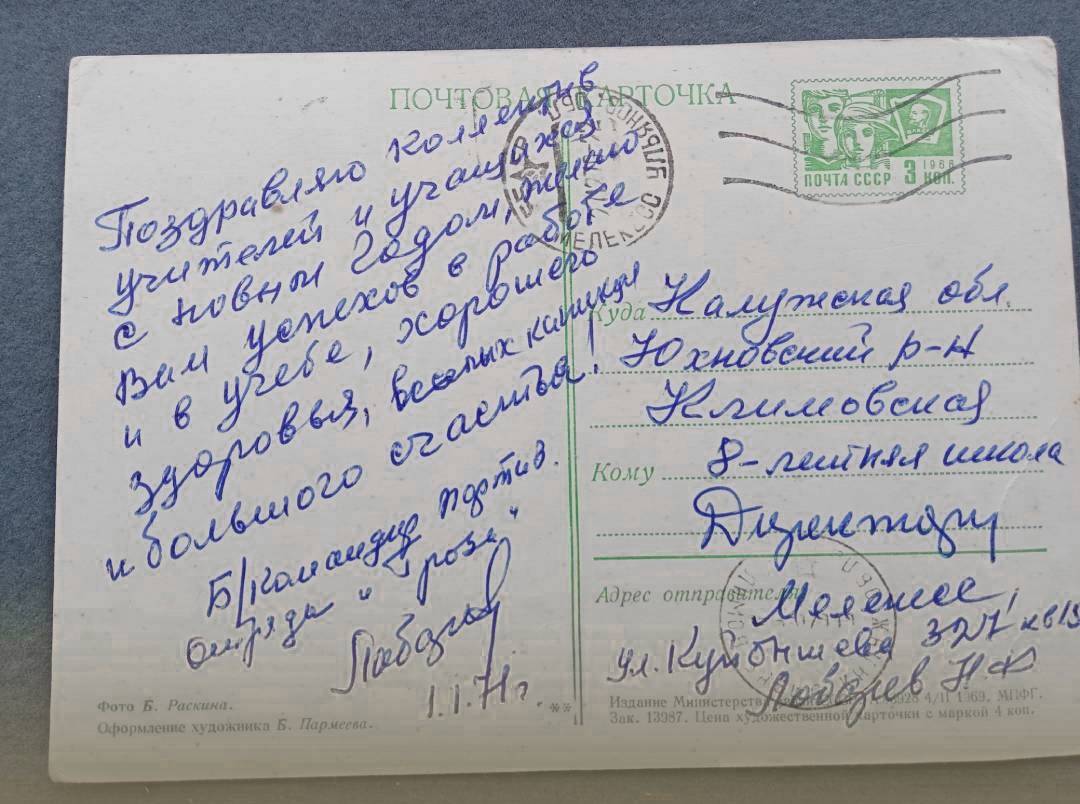 ПОЧТОВАЯ КАРТОЧКА
ПОЧТА СССР 3 КОП.
1966
МЕЛЕКЕСС УЛЬЯНОВ. ОБЛ
Поздравляю коллектив
учителей и учащихся
с новым Годом, желаю
Вам успехов в работе
и в учебе, хорошего
здоровья, веселых каникул
и большого счастья!
Б/Командир партиз.
отряда "Гроза"
Лобазев
1.1.71 г.
Куда Калужская обл.
Юхновский р-н
Климовская
Кому 8-летняя школа
Директору
Адрес отправителя
Мелекесс,
ул. Куйбышева 327 кв 13
Лобазев Н Ф
Фото Б. Раскина.
Оформление художника Б. Пармеева.
Издание Министерства 4/II 1969. МПФГ.
Зак. 13987. Цена художественной карточки с маркой 4 коп.